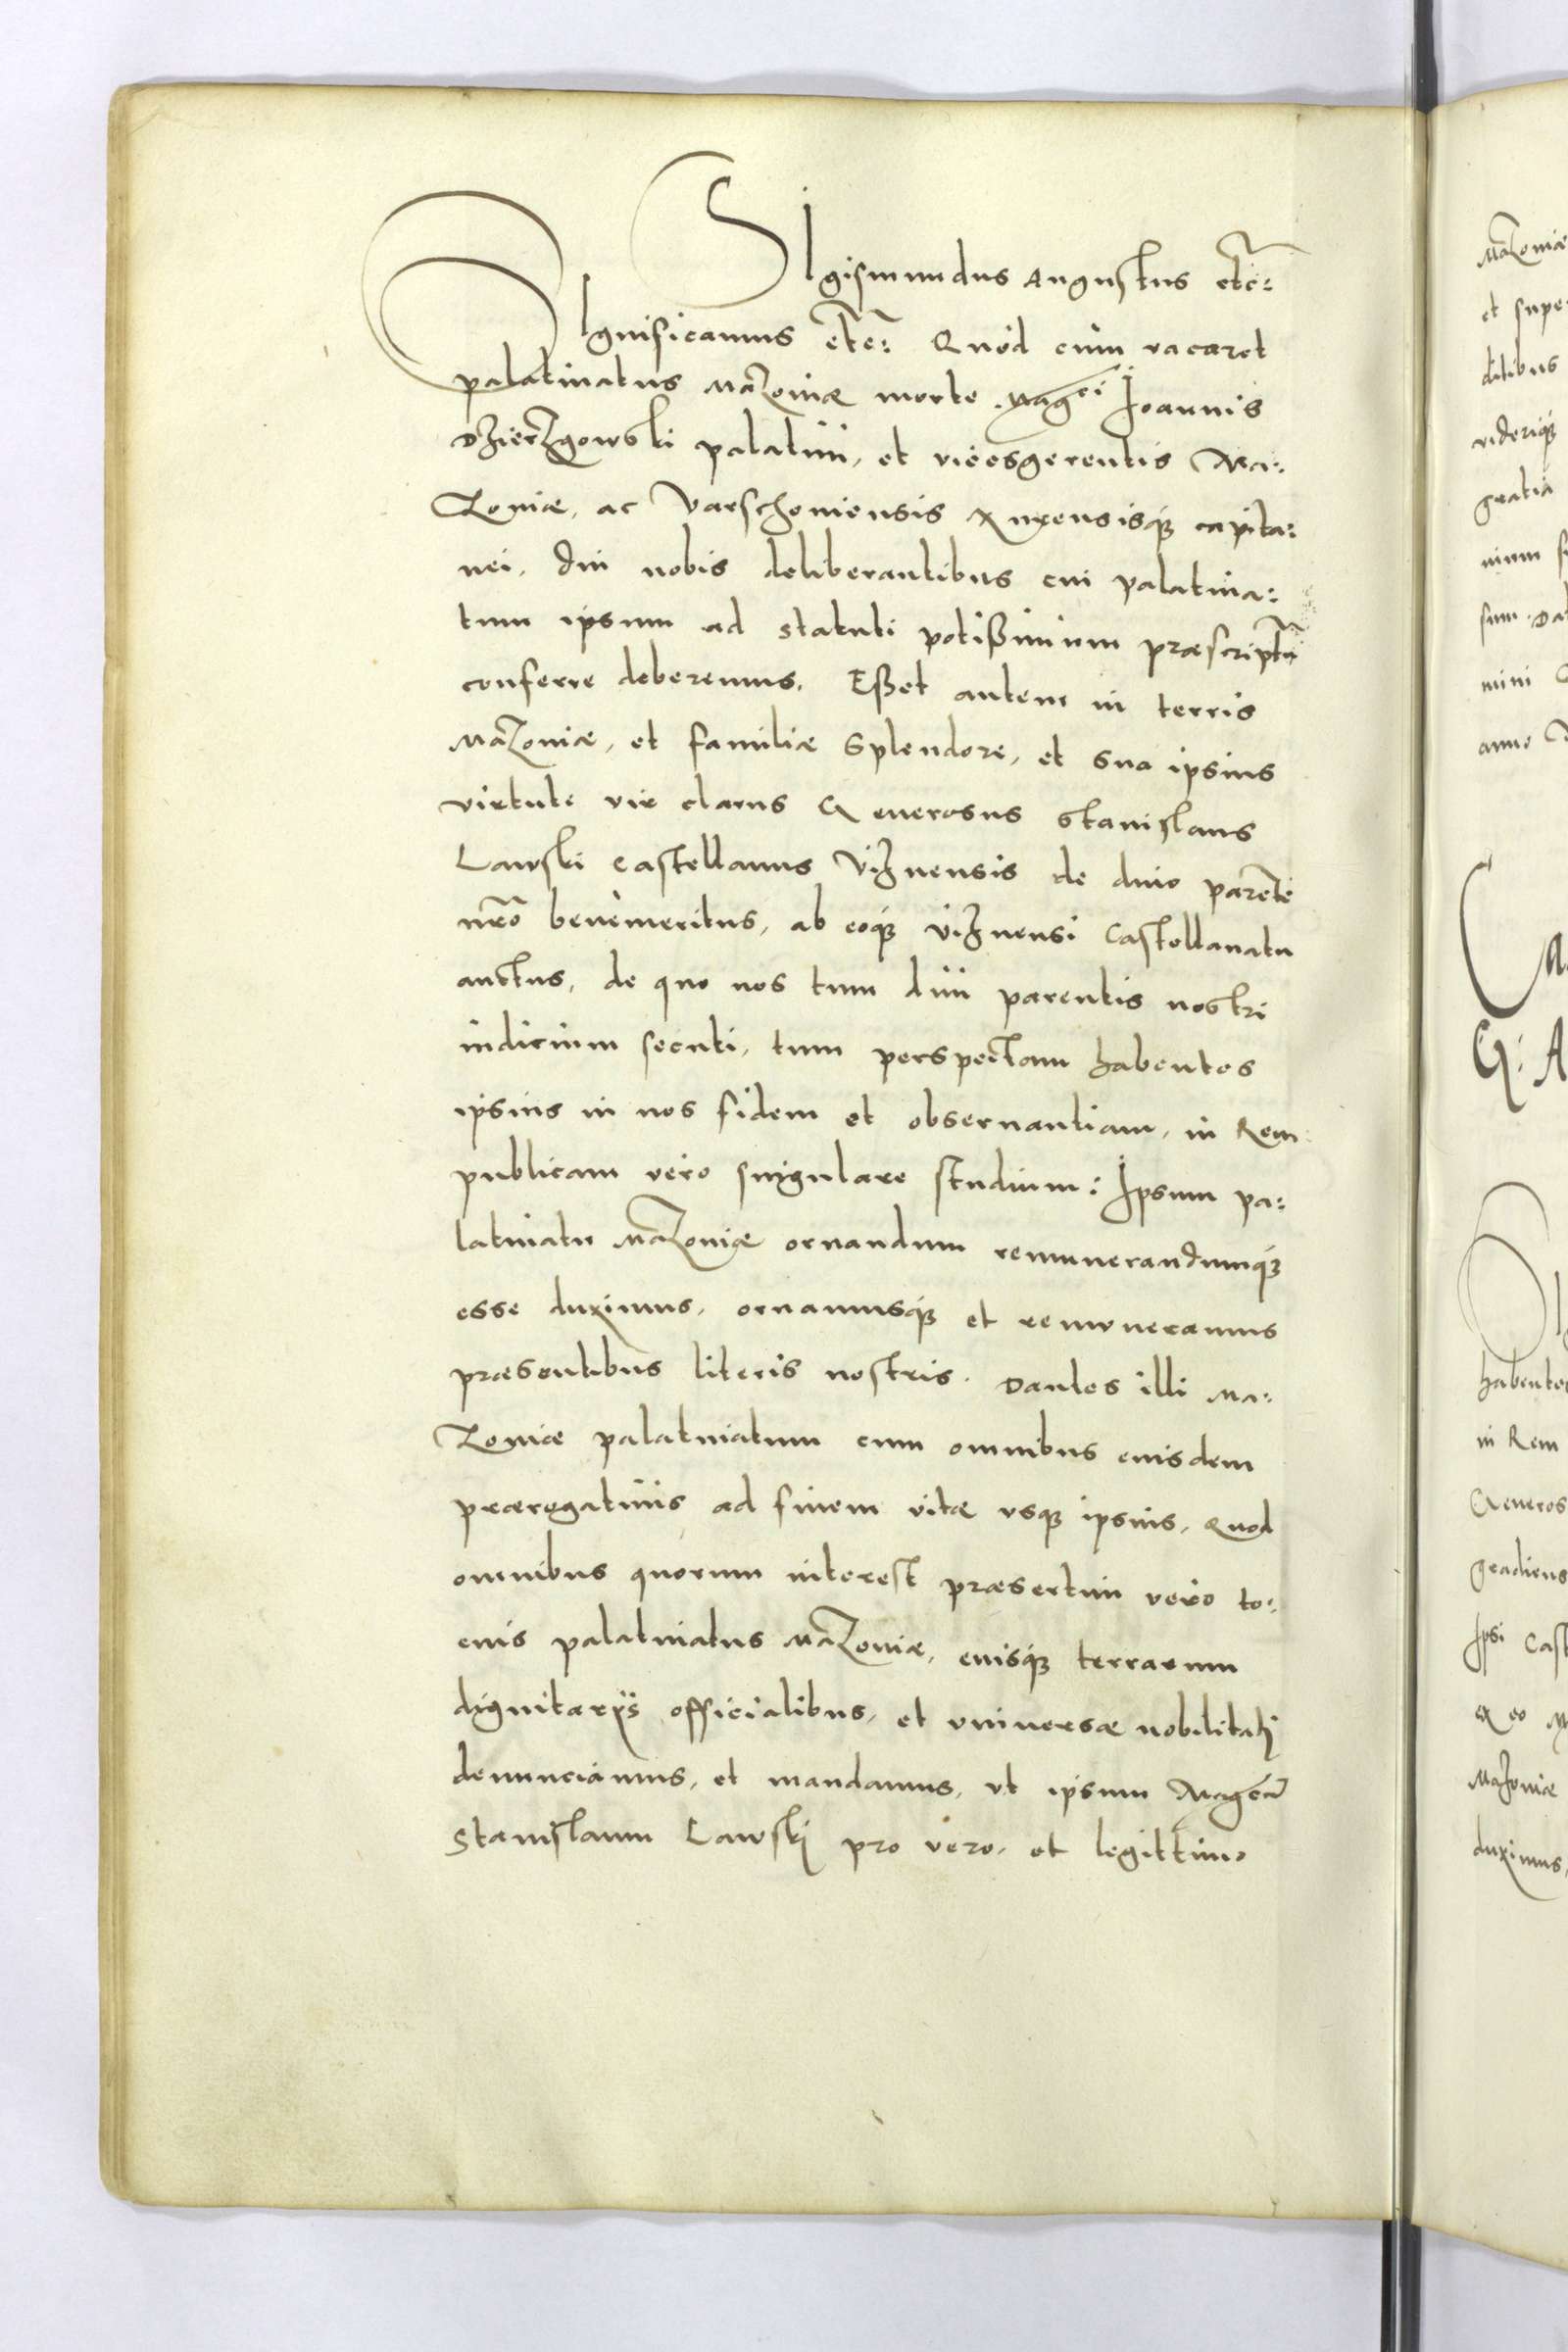 SIgismundus Augustus etc:
SIgnificamus etc: Quòd cùm vacaret
palatinatus Mazoviæ morte Mag^ci Joannis
Dzierzgowski palatini, et vicesgerentis Ma:
zoviæ, ac Varschoviensis
capita:
nei, diu nobis deliberantibus cui palatina:
tum ipsum ad statuti potißimum præscriptũ
conferre deberemus. Eßet autem in terris
Mazoviæ, et familiæ splendore, et sua ipsius
virtute vir clarus Generosus Stanislaus
Lawski Castellanus Viznensis de divo parẽte
nrõ benemeritus, ab eoq́ꝫ Viznensi Castellanatu
auctus, de quo nos tum divi parentis nostri
iudicium secuti, tum perspectam habentes
ipsius in nos fidem et observantiam, in Rem
publicam vero singulare studium: Ipsum pa:
latinatu Mazoviæ ornandum remunerandumq́ꝫ
esse duximus, ornamusq́ꝫ et remuneramus
præsentibus literis nostris. Dantes illi Ma:
zoviæ palatinatum cum omnibus eiusdem
prærogativis ad finem vitæ usqꝫ ipsius, Quod
omnibus quorum interest præsertim vero to:
cius palatinatus Mazoviæ, eiusq́ꝫ terrarum
dignitarijs officialibus, et universæ nobilitati
denunciamus, et mandamus, ut ipsum Magcũ
Stanislaum Lawskj pro vero, et legittimo
Mazoviæ
et supe
ditibus
videriq́ꝫ
gratia
nium
sum. Da
mini
anno
G: A
habentes
in Rem
Generos
gradiens
Ipsi Cast
ex eo M
Mazoviæ
duximus,